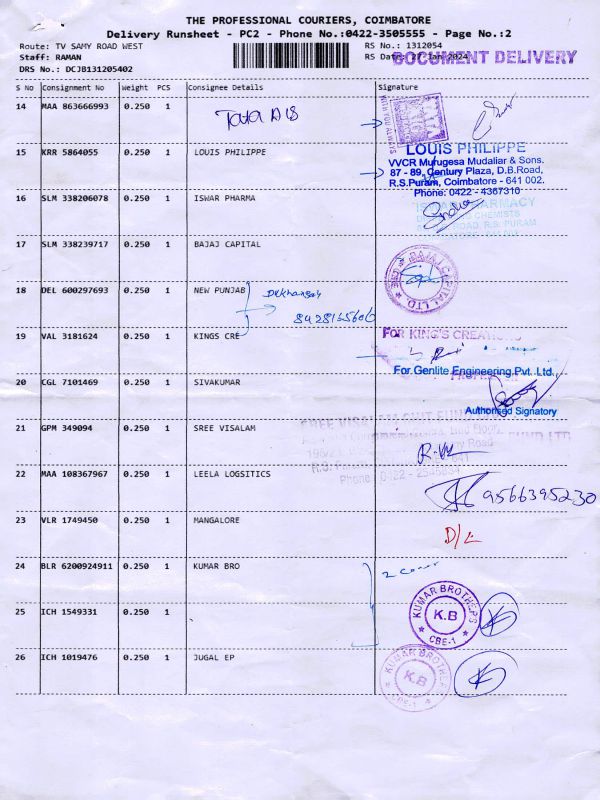 THE PROFESSIONAL COURIERS, COIMBATORE
Delivery Runsheet - PC2 - Phone No.:0422-3505555 - Page No.:2
Route: TV SAMY ROAD WEST
RS No.: 1312054
Staff: RAMAN
RS Date: 27-Jan-2024
DOCUMENT DELIVERY
DRS No.: DCJB131205402
S No Consignment No Weight PCS Consignee Details Signature
14 MAA 863666993 0.250 1
15 KRR 5864055 0.250 1 LOUIS PHILIPPE
LOUIS PHILIPPE
VVCR Murugesa Mudaliar & Sons.
87 - 89, Century Plaza, D.B.Road,
R.S.Puram, Coimbatore - 641 002.
Phone: 0422 - 4367310
16 SLM 338206078 0.250 1 ISWAR PHARMA
17 SLM 338239717 0.250 1 BAJAJ CAPITAL
BAJAJ CAPITAL LTD
18 DEL 600297693 0.250 1 NEW PUNJAB
19 VAL 3181624 0.250 1 KINGS CRE
For KING'S CREATIONS
For Genlite Engineering Pvt. Ltd.,
20 CGL 7101469 0.250 1 SIVAKUMAR
Authorised Signatory
21 GPM 349094 0.250 1 SREE VISALAM
22 MAA 108367967 0.250 1 LEELA LOGSITICS
9566395230
23 VLR 1749450 0.250 1 MANGALORE
D/L
24 BLR 6200924911 0.250 1 KUMAR BRO
25 ICH 1549331 0.250 1
KUMAR BROTHERS
K.B
CBE-1
26 ICH 1019476 0.250 1 JUGAL EP
KUMAR BROTHERS
K.B
CBE-1